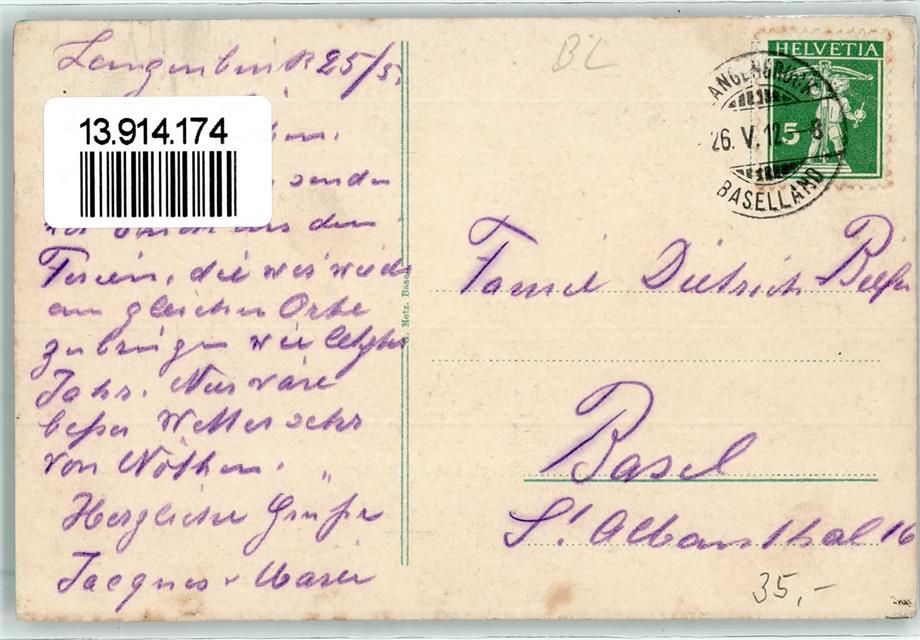 Langenbruck 25/5.
senden
aus den
Ferien, die wir wieder
am gleichen Orte
zubringen wie letztes
Jahr. Nur wäre
beßer Wetter sehr
von Nöthen.
Herzliche Grüße
Jacques & Marie
13.914.174
Metz, Basel
BL
HELVETIA
5
LANGENBRUCK
26. V. 12 - 8
BASELLAND
Famil Dietrich
Basel
St. Albanthal 16
35,-